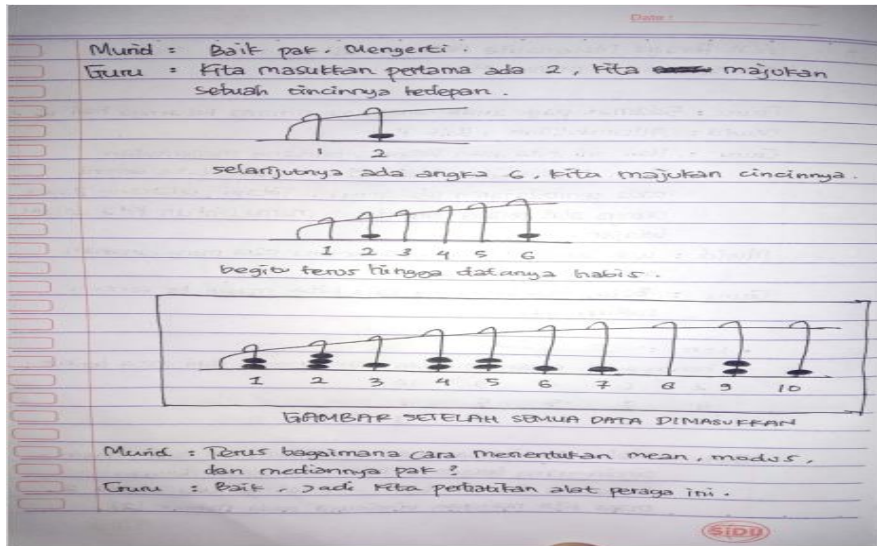 Date :
Murid : Baik pak. Mengerti.
Guru : Kita masukkan pertama ada 2, kita majukan
sebuah cincinnya kedepan.
1 2
selanjutnya ada angka 6, kita majukan cincinnya.
1 2 3 4 5 6
begitu terus hingga datanya habis.
1 2 3 4 5 6 7 8 9 10
GAMBAR SETELAH SEMUA DATA DIMASUKKAN
Murid : Terus bagaimana cara menentukan mean, modus,
dan mediannya pak ?
Guru : Baik, Jadi kita perhatikan alat peraga ini.
SIDU